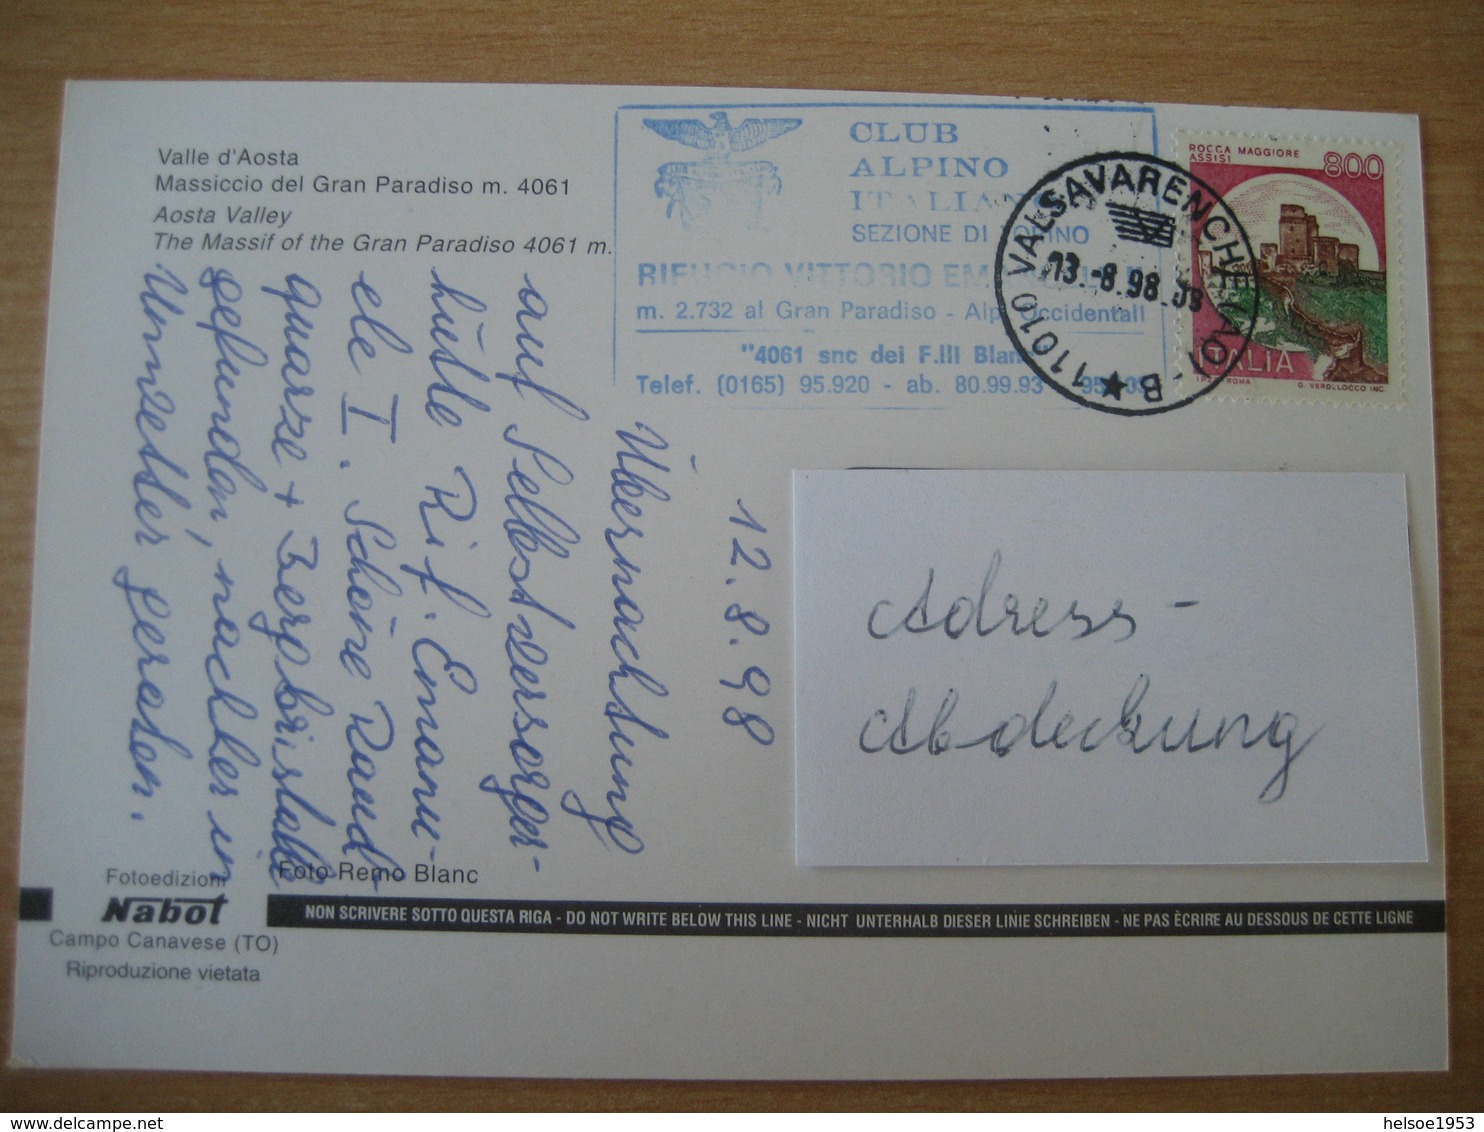 Valle d'Aosta
Massiccio del Gran Paradiso m. 4061
Aosta Valley
The Massif of the Gran Paradiso 4061 m.
CLUB
ALPINO
ITALIANO
SEZIONE DI TORINO
RIFUGIO VITTORIO EMANUELE
m. 2.732 al Gran Paradiso - Alpi Occidentali
"4061 snc dei F.lli Blanc
Telef. (0165) 95.920 - ab. 80.99.93 - 95
11010 VALSAVARENCHE (AO) - B
13.-8.98
ROCCA MAGGIORE
ASSISI
800
ITALIA
I.P.Z.S. ROMA
G. VERDELOCCO INC
12.8.98
Übernachtung
auf Selbstversorger-
hütte Rif. Emanu-
ele I. Schöne Rauch-
quarze + Bergkristalle
gefunden, nachher in
Unwetter geraten.
Adress-
Abdeckung
Foto Remo Blanc
Fotoedizioni
Nabot
Campo Canavese (TO)
Riproduzione vietata
NON SCRIVERE SOTTO QUESTA RIGA - DO NOT WRITE BELOW THIS LINE - NICHT UNTERHALB DIESER LINIE SCHREIBEN - NE PAS ÈCRIRE AU DESSOUS DE CETTE LIGNE
helsoe1953